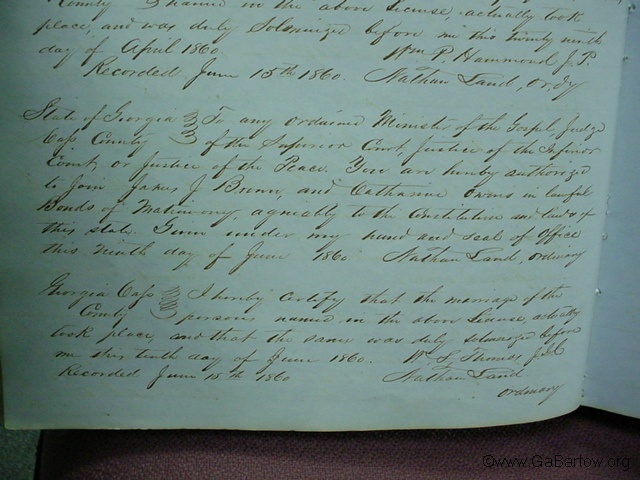 County } named in the above License, actually took
place, and was duly Solemnized before me this twenty ninth
day of April 1860. Wm P. Hammond J.P.
Recorded June 15th 1860. Nathan Land, Ordy
State of Georgia } To any ordained Minister of the Gospel, Judge
Cass County } of the Superior Court, Justice of the Inferior
Court, or Justice of the Peace. You are hereby authorized
to Join James J Brown, and Catharine Owens in lawful
Bonds of Matrimony, agreeably to the Constitution and laws of
this state. Given under my hand and seal of Office
this ninth day of June 1860 Nathan Land, ordinary
Georgia Cass } I hereby certify that the marriage of the
County } persons named in the above License, actually
took place, and that the same was duly solemnized before
me this tenth day of June 1860. Wm S. Thomas
Recorded June 15th 1860 Nathan Land
ordinary
©www.GaBartow.org